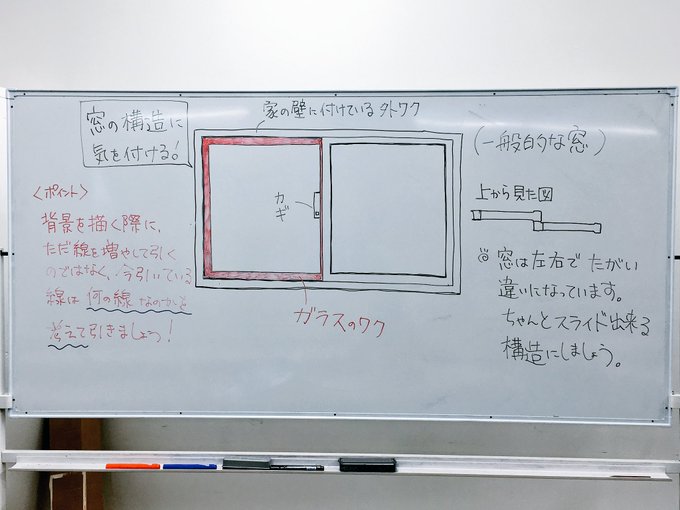 窓の構造に
気を付ける!
家の壁に付けている外ワク
(一般的な窓)
カギ
ガラスのワク
<ポイント>
背景を描く際に、
ただ線を増やして引く
のではなく、今引いている
線は何の線なのかを
考えて引きましょう!
上から見た図
◎窓は左右でたがい
違いになっています。
ちゃんとスライド出来る
構造にしましょう。